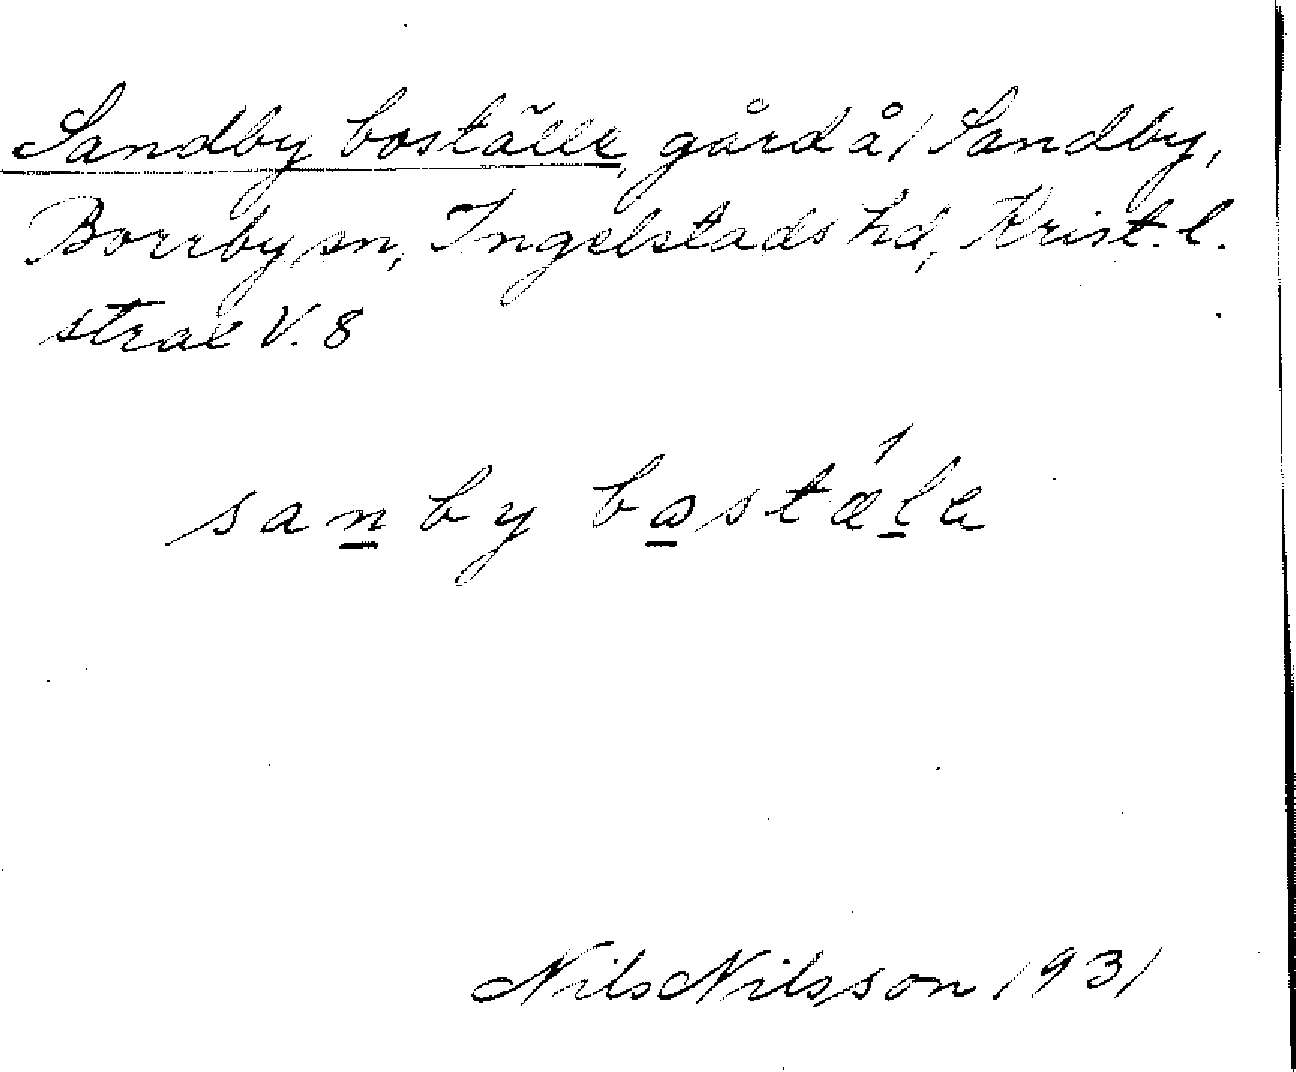 Sandby boställe, gård å 1 Sandby,
Borrby sn, Ingelstads hd, Krist. l.
strax V. 8
sanby bostæ´le
Nils Nilsson 1931